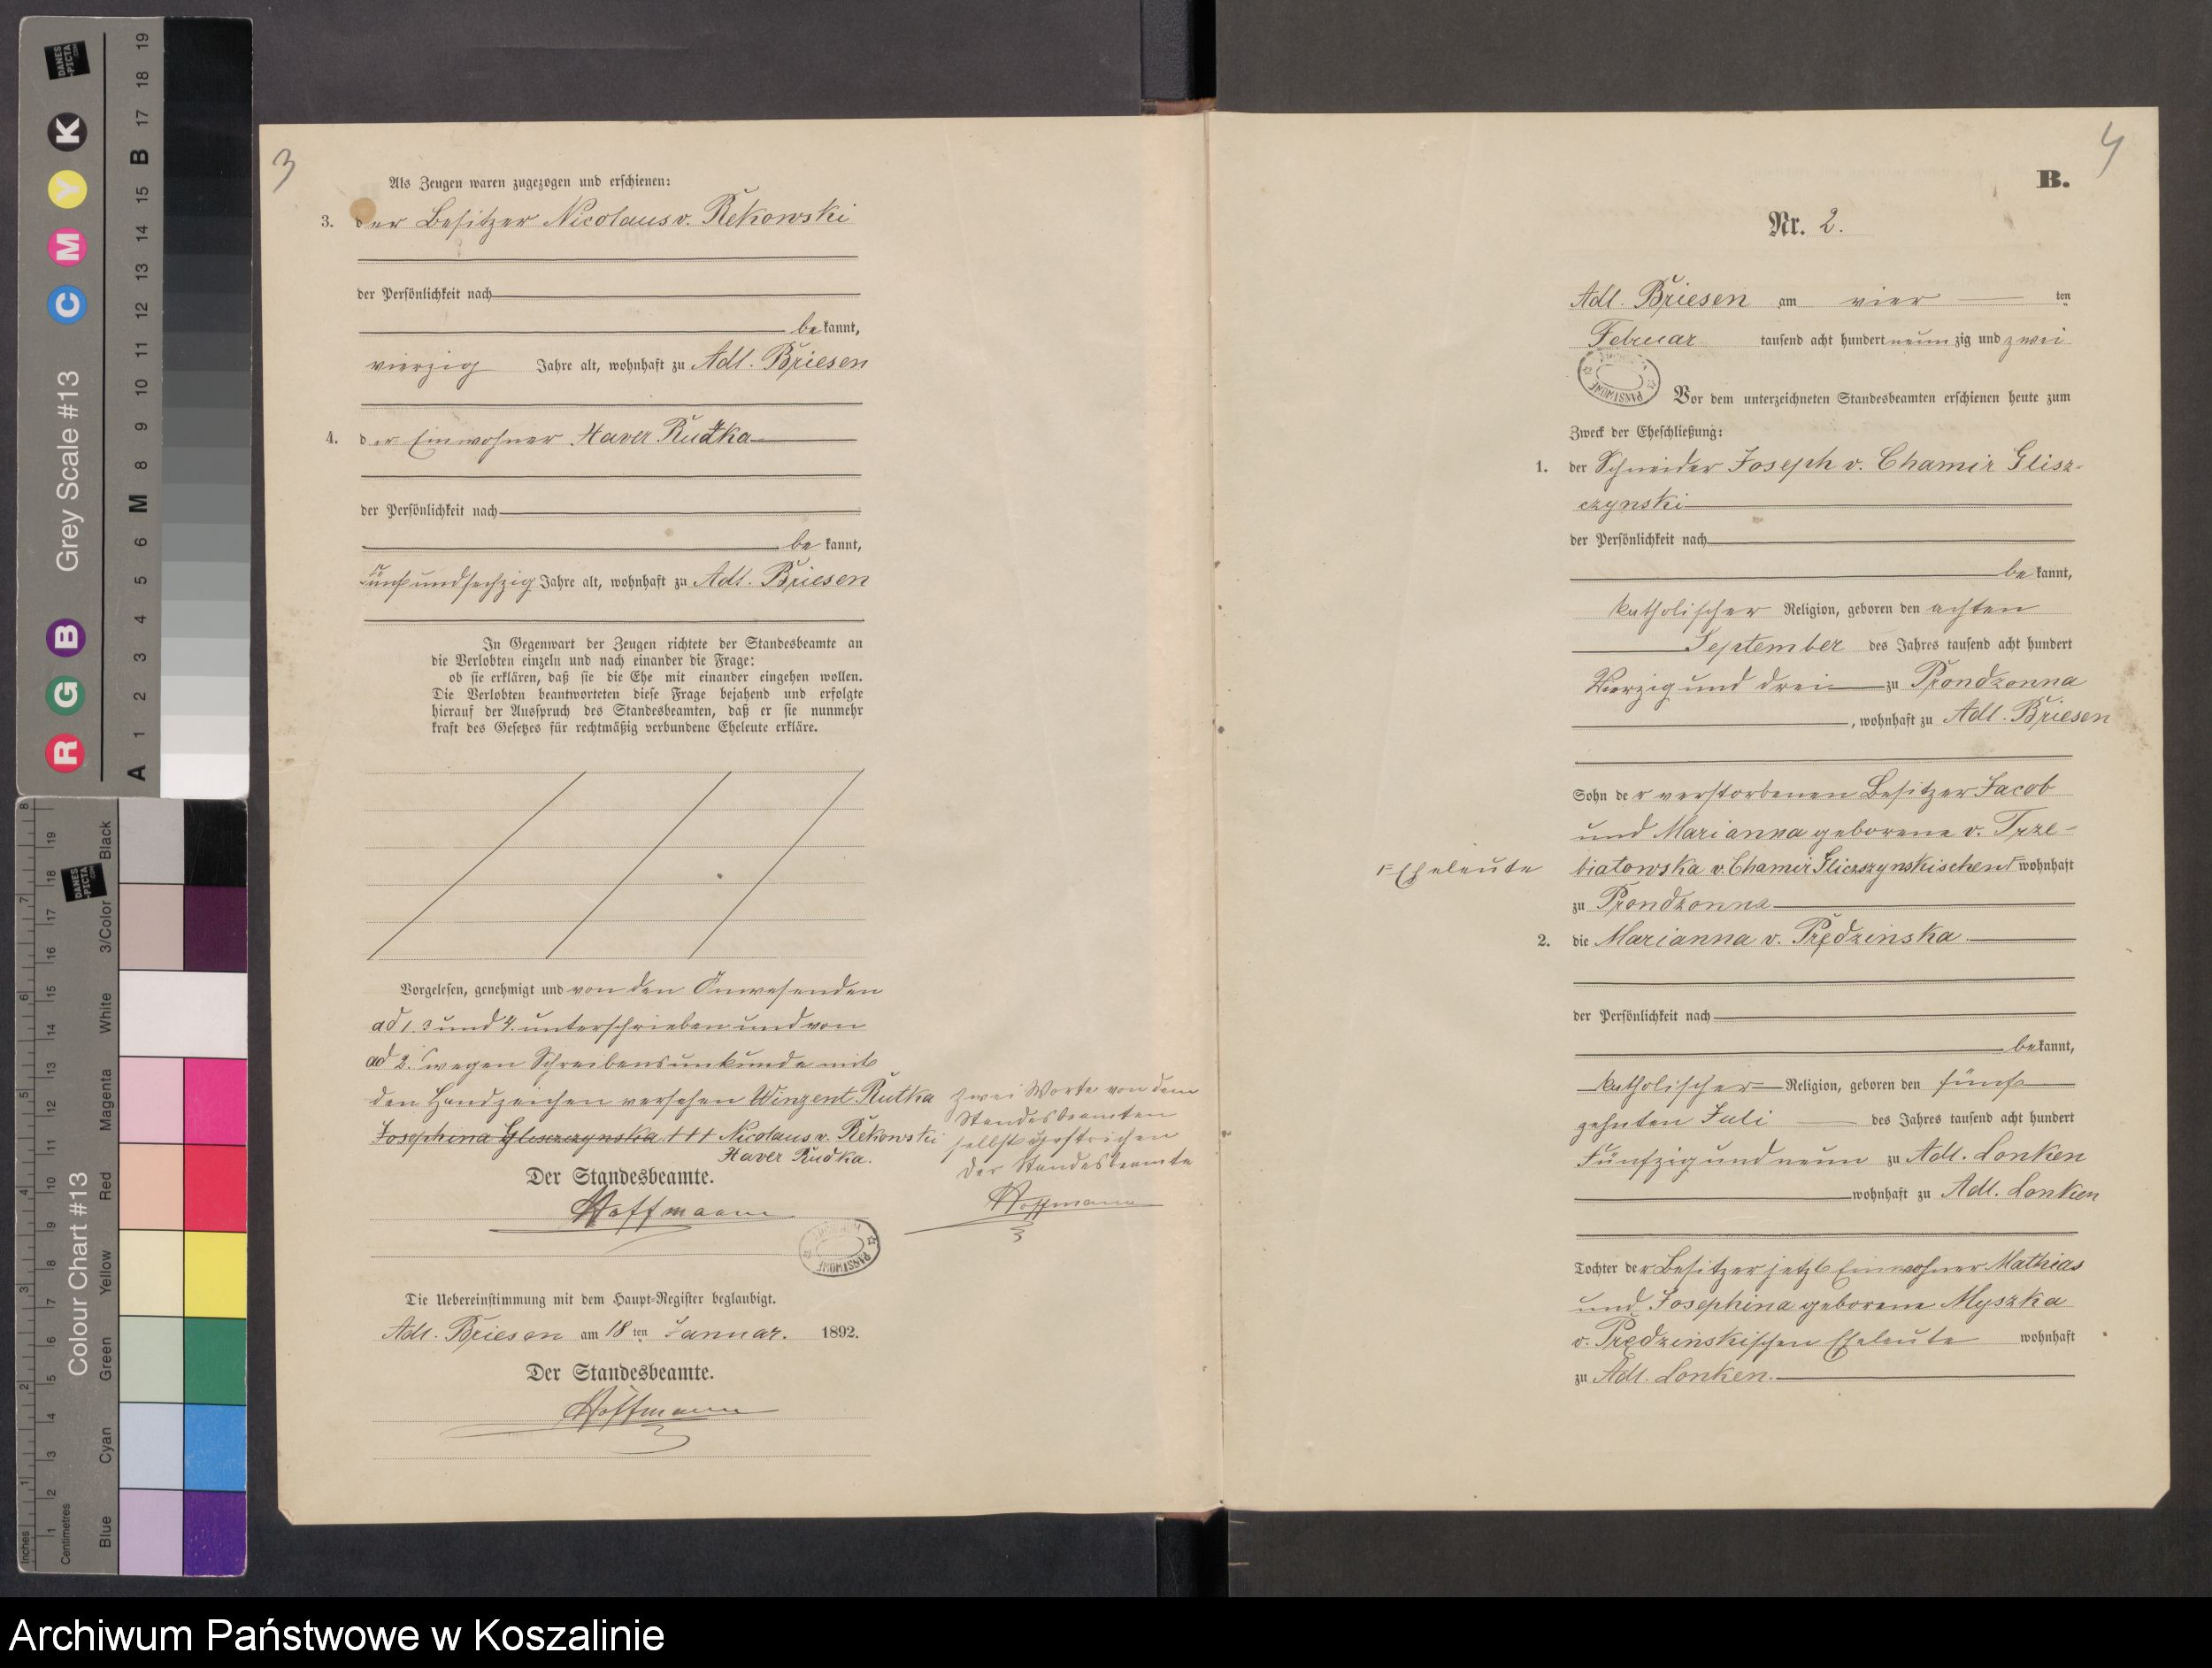 3
Als Zeugen waren zugezogen und erschienen:
3. der Besitzer Nicolaus v. Rekowski
der Persönlichkeit nach
be kannt,
vierzig Jahre alt, wohnhaft zu Adl. Briesen
4. der Einwohner Xaver Rudka
der Persönlichkeit nach
be kannt,
fünfundsechzig Jahre alt, wohnhaft zu Adl. Briesen
In Gegenwart der Zeugen richtete der Standesbeamte an
die Verlobten einzeln und nach einander die Frage:
ob sie erklären, daß sie die Ehe mit einander eingehen wollen.
Die Verlobten beantworteten diese Frage bejahend und erfolgte
hierauf der Ausspruch des Standesbeamten, daß er sie nunmehr
kraft des Gesetzes für rechtmäßig verbundene Eheleute erkläre.
Vorgelesen, genehmigt und von den Anwesenden
ad 1. 3 und 4. unterschrieben und von
ad 2. wegen Schreibensunkunde mit
den Handzeichen versehen Winzent Rutka
Josephina Glisczczynska +++ Nicolaus v. Rekowski
Xaver Rudka.
zwei Worte von dem
Standesbeamten
selbst gestrichen
Der Standesbeamte
Hoffmann
Der Standesbeamte.
Hoffmann
Die Uebereinstimmung mit dem Haupt-Register beglaubigt.
Adl. Briesen am 18 ten Januar. 1892.
Der Standesbeamte.
Hoffmann
4
B.
Nr. 2.
Adl. Briesen am vier ten
Februar tausend acht hundert neun zig und zwei
PAŃSTWOWE
Vor dem unterzeichneten Standesbeamten erschienen heute zum
Zweck der Eheschließung:
1. der Schneider Joseph v. Chamir Glisz-
czynski
der Persönlichkeit nach
be kannt,
katholischer Religion, geboren den achten
September des Jahres tausend acht hundert
Vierzig und drei zu Prondzonna
, wohnhaft zu Adl. Briesen
Sohn der verstorbenen Besitzer Jacob
und Marianna geborene v. Trze-
biatowska v. Chamir Gliczszynskischen wohnhaft
Eheleute
zu Prondzonna
2. die Marianna v. Prędzinska
der Persönlichkeit nach
be kannt,
katholischer Religion, geboren den fünf
zehnten Juli des Jahres tausend acht hundert
Fünfzig und neun zu Adl. Lonken
wohnhaft zu Adl. Lonken
Tochter der Besitzer jetzt Einwohner Mathias
und Josephina geborene Myszka
v. Prędzinskischen Eheleute wohnhaft
zu Adl. Lonken.
Grey Scale #13
R G B C M Y K
A 1 2 3 4 5 6 M 8 9 10 11 12 13 14 15 B 17 18 19
DANES PICTA .COM
Colour Chart #13
Blue Cyan Green Yellow Red Magenta White 3/Color Black
Inches
Centimetres
Archiwum Państwowe w Koszalinie